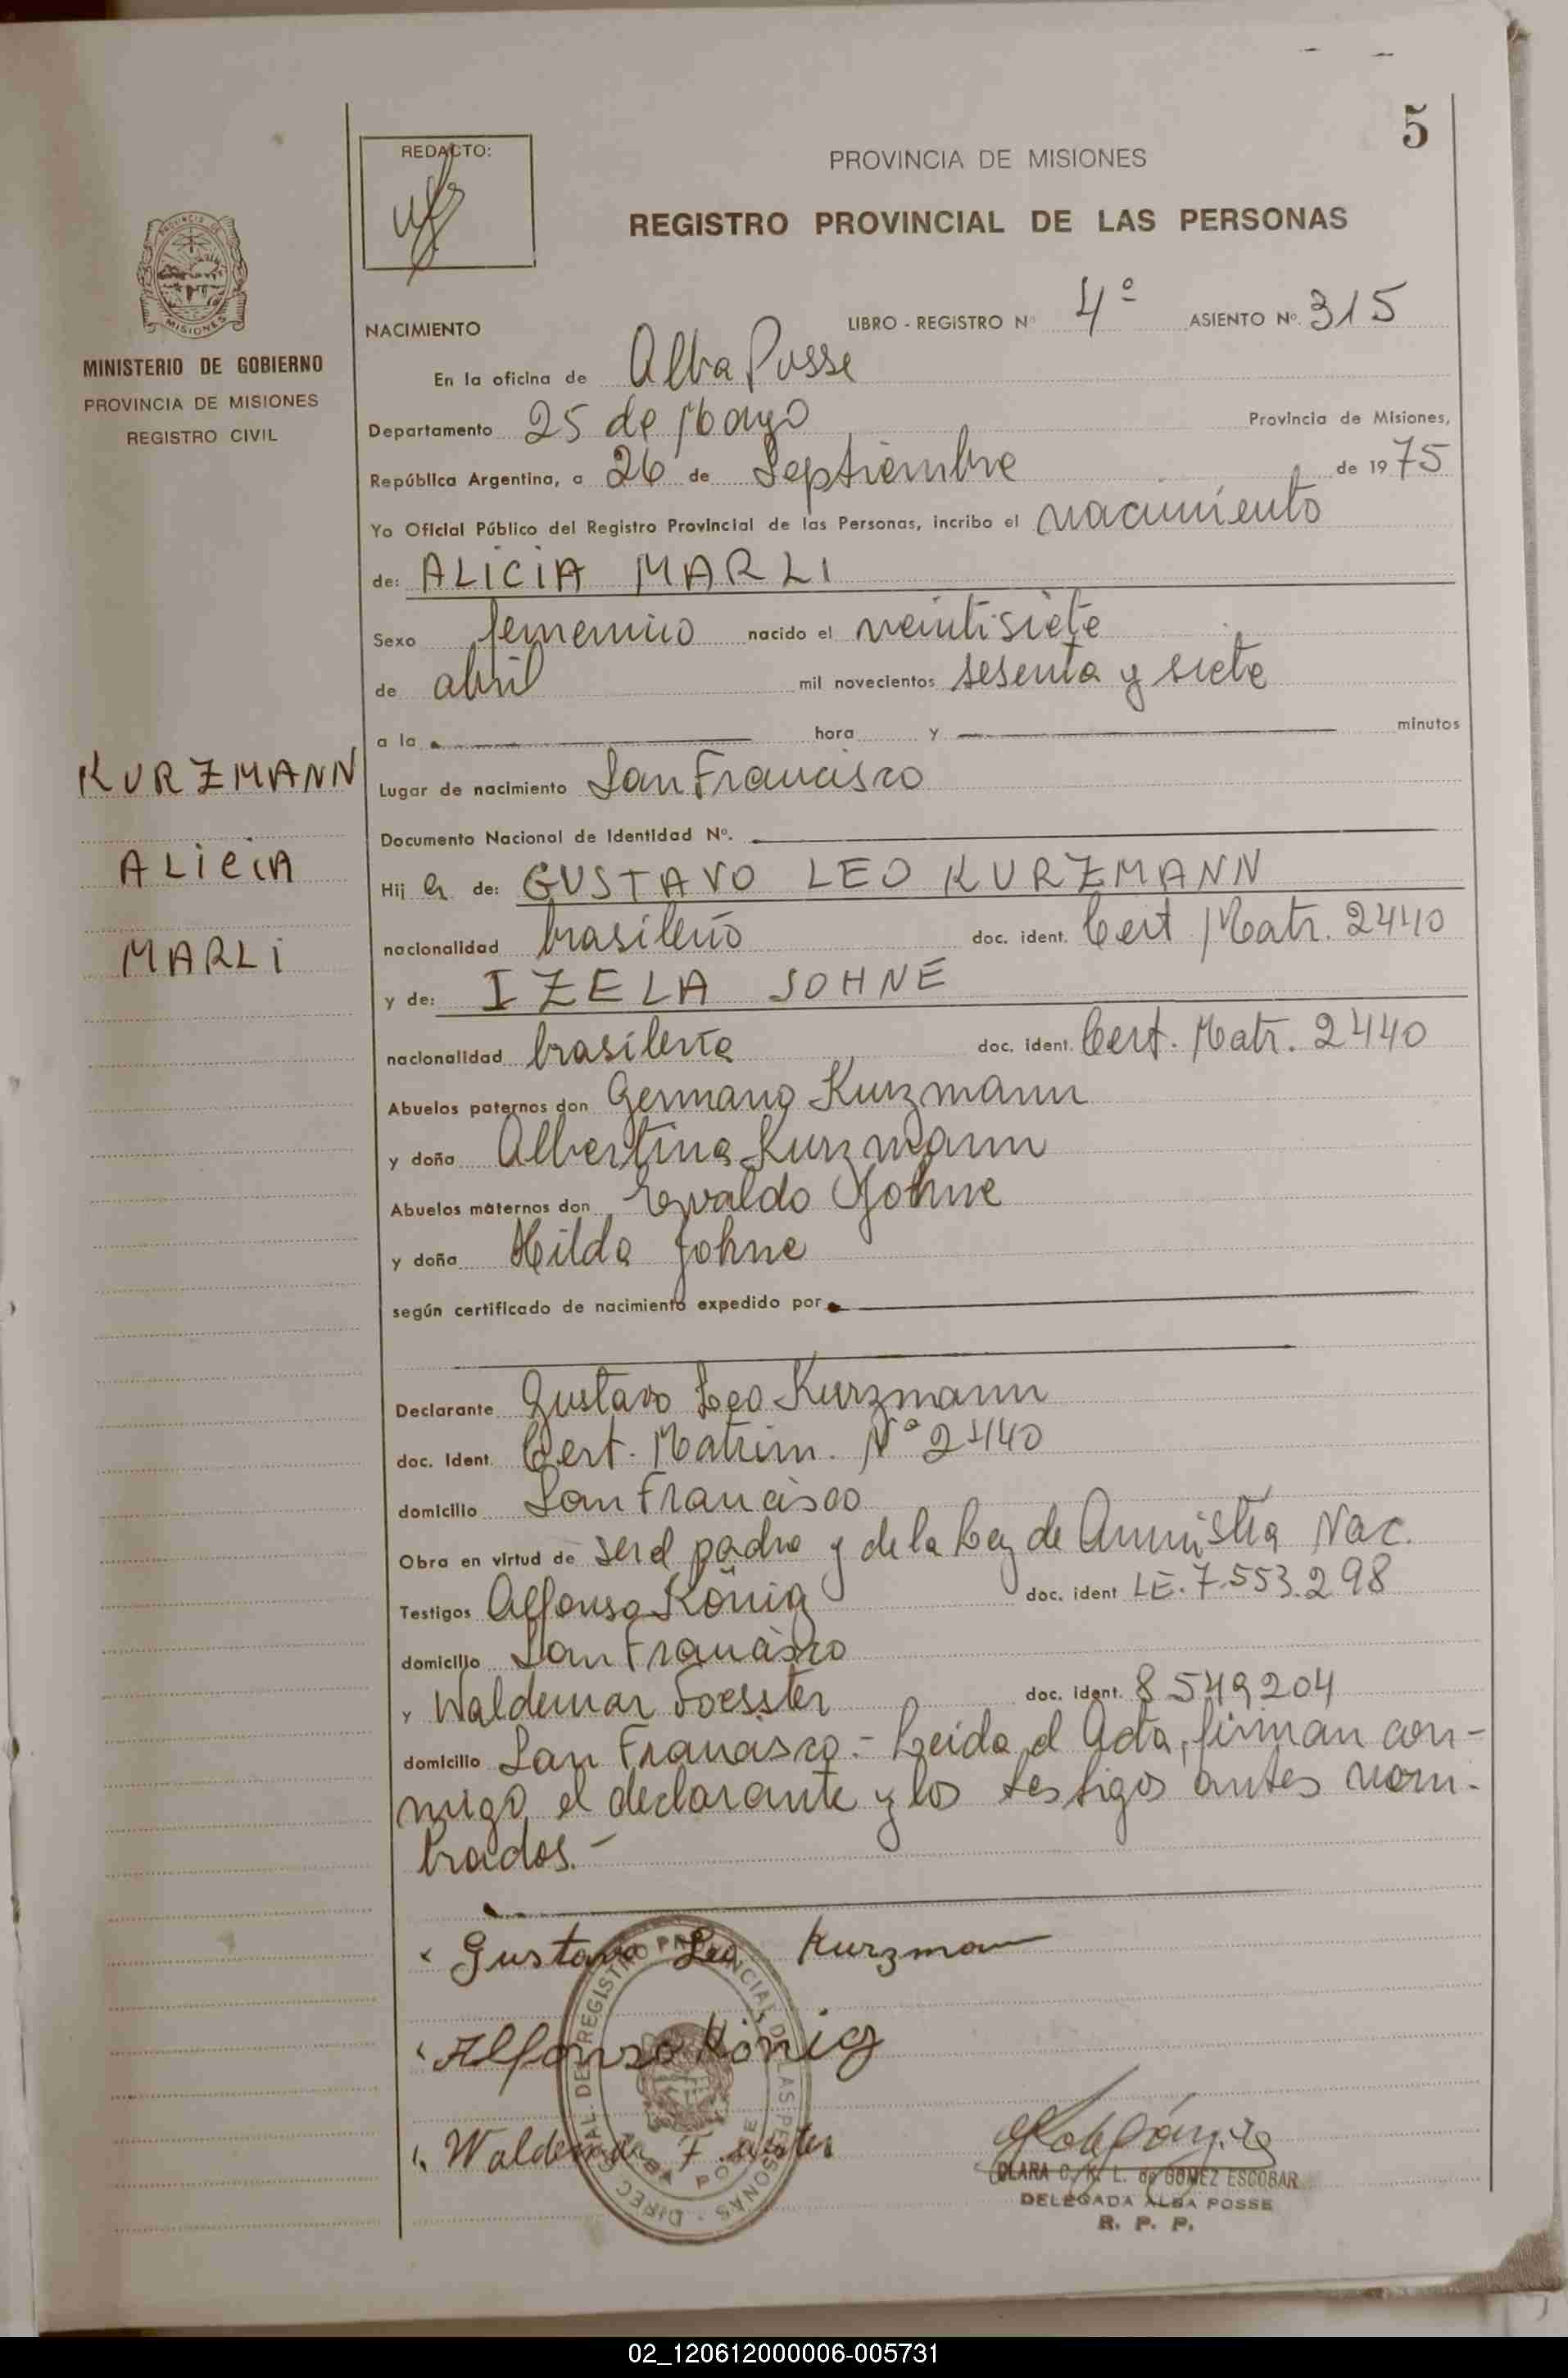 5
REDACTO:
PROVINCIA DE MISIONES
REGISTRO PROVINCIAL DE LAS PERSONAS
MISIONES
MINISTERIO DE GOBIERNO
PROVINCIA DE MISIONES
REGISTRO CIVIL
KURZMANN
ALICIA
MARLI
NACIMIENTO LIBRO - REGISTRO Nº 4º ASIENTO Nº. 315
En la oficina de Alba Posse
Departamento 25 de Mayo Provincia de Misiones,
República Argentina, a 26 de Septiembre de 1975
Yo Oficial Público del Registro Provincial de las Personas, incribo el nacimiento
de: ALICIA MARLI
Sexo femenino nacido el veintisiete
de abril mil novecientos sesenta y siete
a la hora y minutos
Lugar de nacimiento San Francisco
Documento Nacional de Identidad Nº.
Hij a de: GUSTAVO LEO KURZMANN
nacionalidad brasileño doc. ident. Cert Matr. 2440
y de: IZELA JOHNE
nacionalidad brasileña doc. ident. Cert. Matr. 2440
Abuelos paternos don Germano Kurzmann
y doña Albertina Kurzmann
Abuelos maternos don Evaldo Johne
y doña Hilda Johne
según certificado de nacimiento expedido por
Declarante Gustavo Leo Kurzmann
doc. Ident. Cert. Matrim. Nº 2440
domicilio San Francisco
Obra en virtud de ser el padre y de la Ley de Amnistía Nac.
Testigos Alfonso König doc. ident LE. 7.553.298
domicilio San Francisco
y Waldemar Foesster doc. ident. 8549204
domicilio San Francisco.- Leida el Acta, firman con-
migo el declarante y los testigos antes nom-
brados.-
Gustavo Leo Kurzmann
Alfonso König
Waldemar
DIREC. GRAL. DEL REGISTRO PROVINCIAL DE LAS PERSONAS
ALBA POSSE
CLARA C. K. L. de GOMEZ ESCOBAR
DELEGADA ALBA POSSE
R. P. P.
02_120612000006-005731